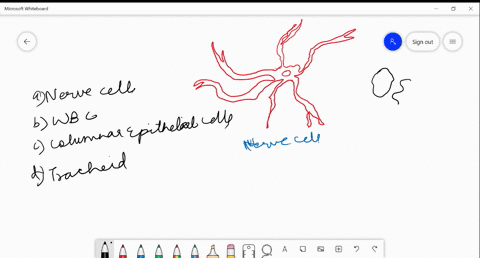 Microsoft Whiteboard
Sign out
a) Nerve cell
b) WBC
c) Columnar Epithelial cells
d) Tracheid
Nerve cell
A